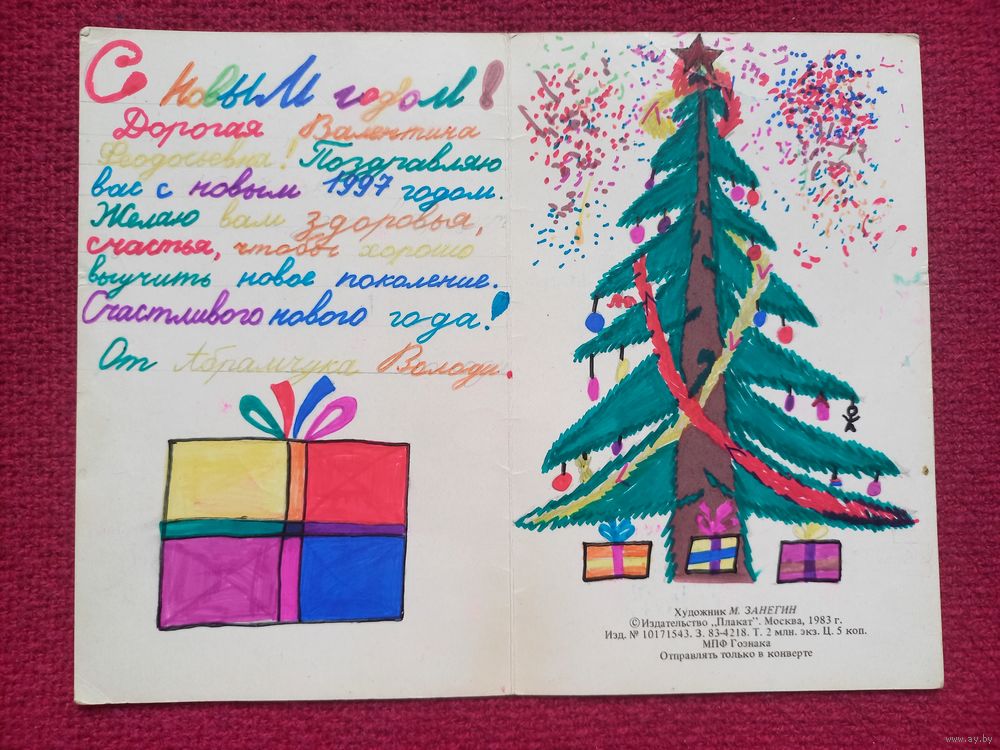 С Новым годом!
Дорогая Валентина
Феодосьевна! Поздравляю
вас с новым 1997 годом.
Желаю вам здоровья,
счастья, чтобы хорошо
выучить новое поколение.
Счастливого нового года!
От Абрамчука Володи.
Художник М. ЗАНЕГИН
©Издательство „Плакат". Москва, 1983 г.
Изд. № 10171543. З. 83-4218. Т. 2 млн. экз. Ц. 5 коп.
МПФ Гознака
Отправлять только в конверте
www.ay.by